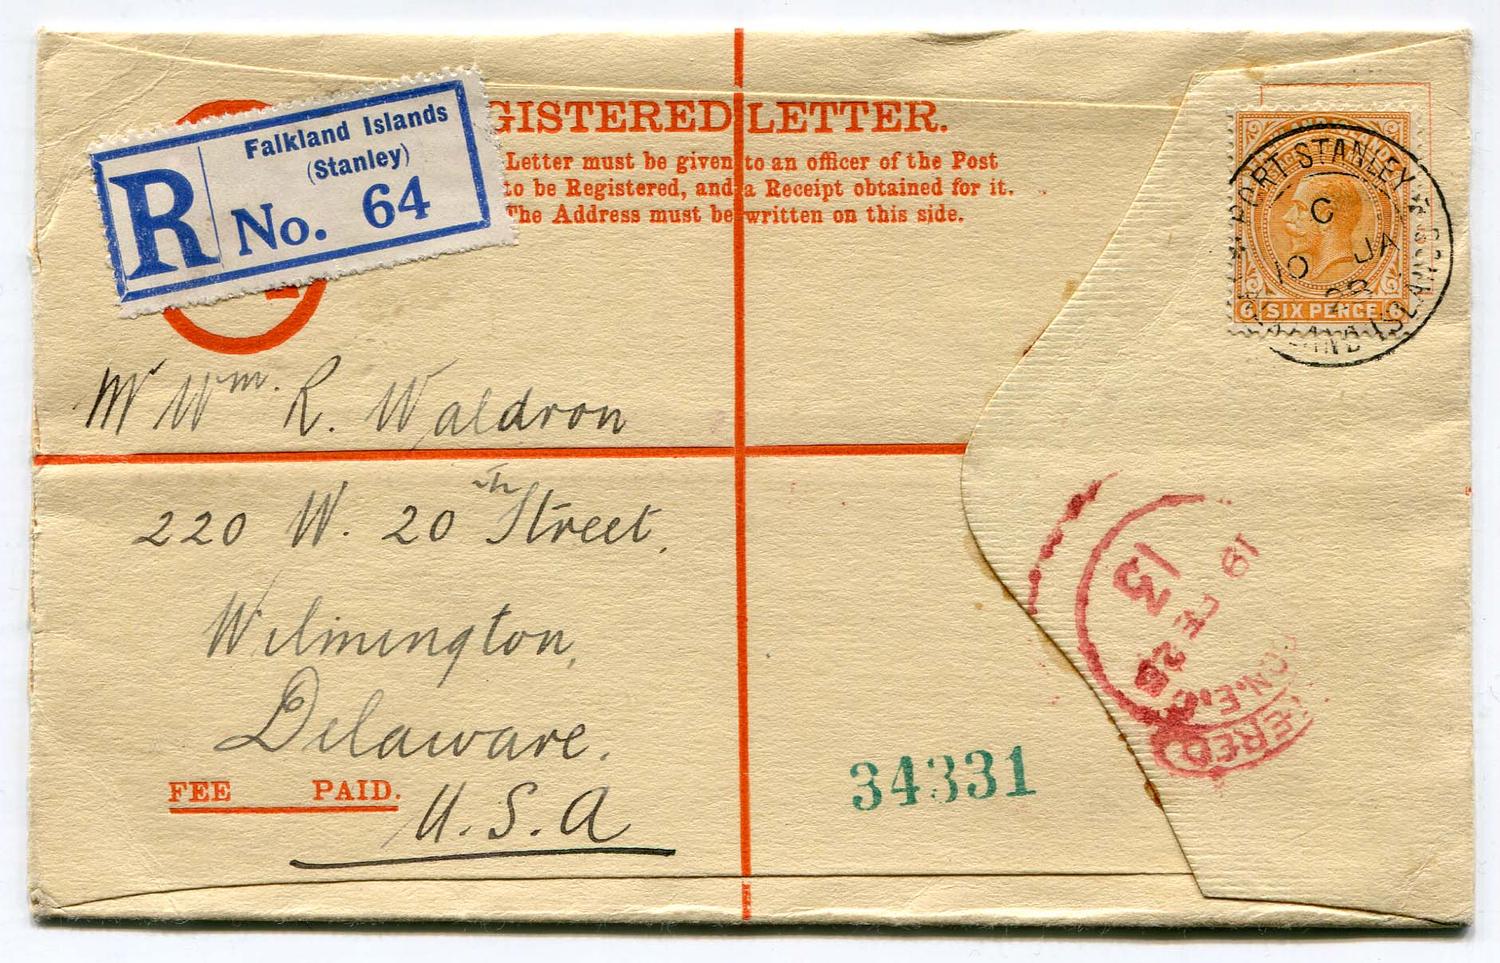 Falkland Islands
(Stanley)
R No. 64
GISTERED LETTER.
Letter must be given to an officer of the Post
to be Registered, and a Receipt obtained for it.
The Address must be written on this side.
PORT STANLEY
C
10 JA
28
FALKLAND ISLANDS
6 SIX PENCE 6
Mr Wm. R. Waldron
220 W. 20th Street,
Wilmington,
Delaware.
U.S.A
FEE PAID.
34331
13
19 FE 28
ERED
ON.E.C